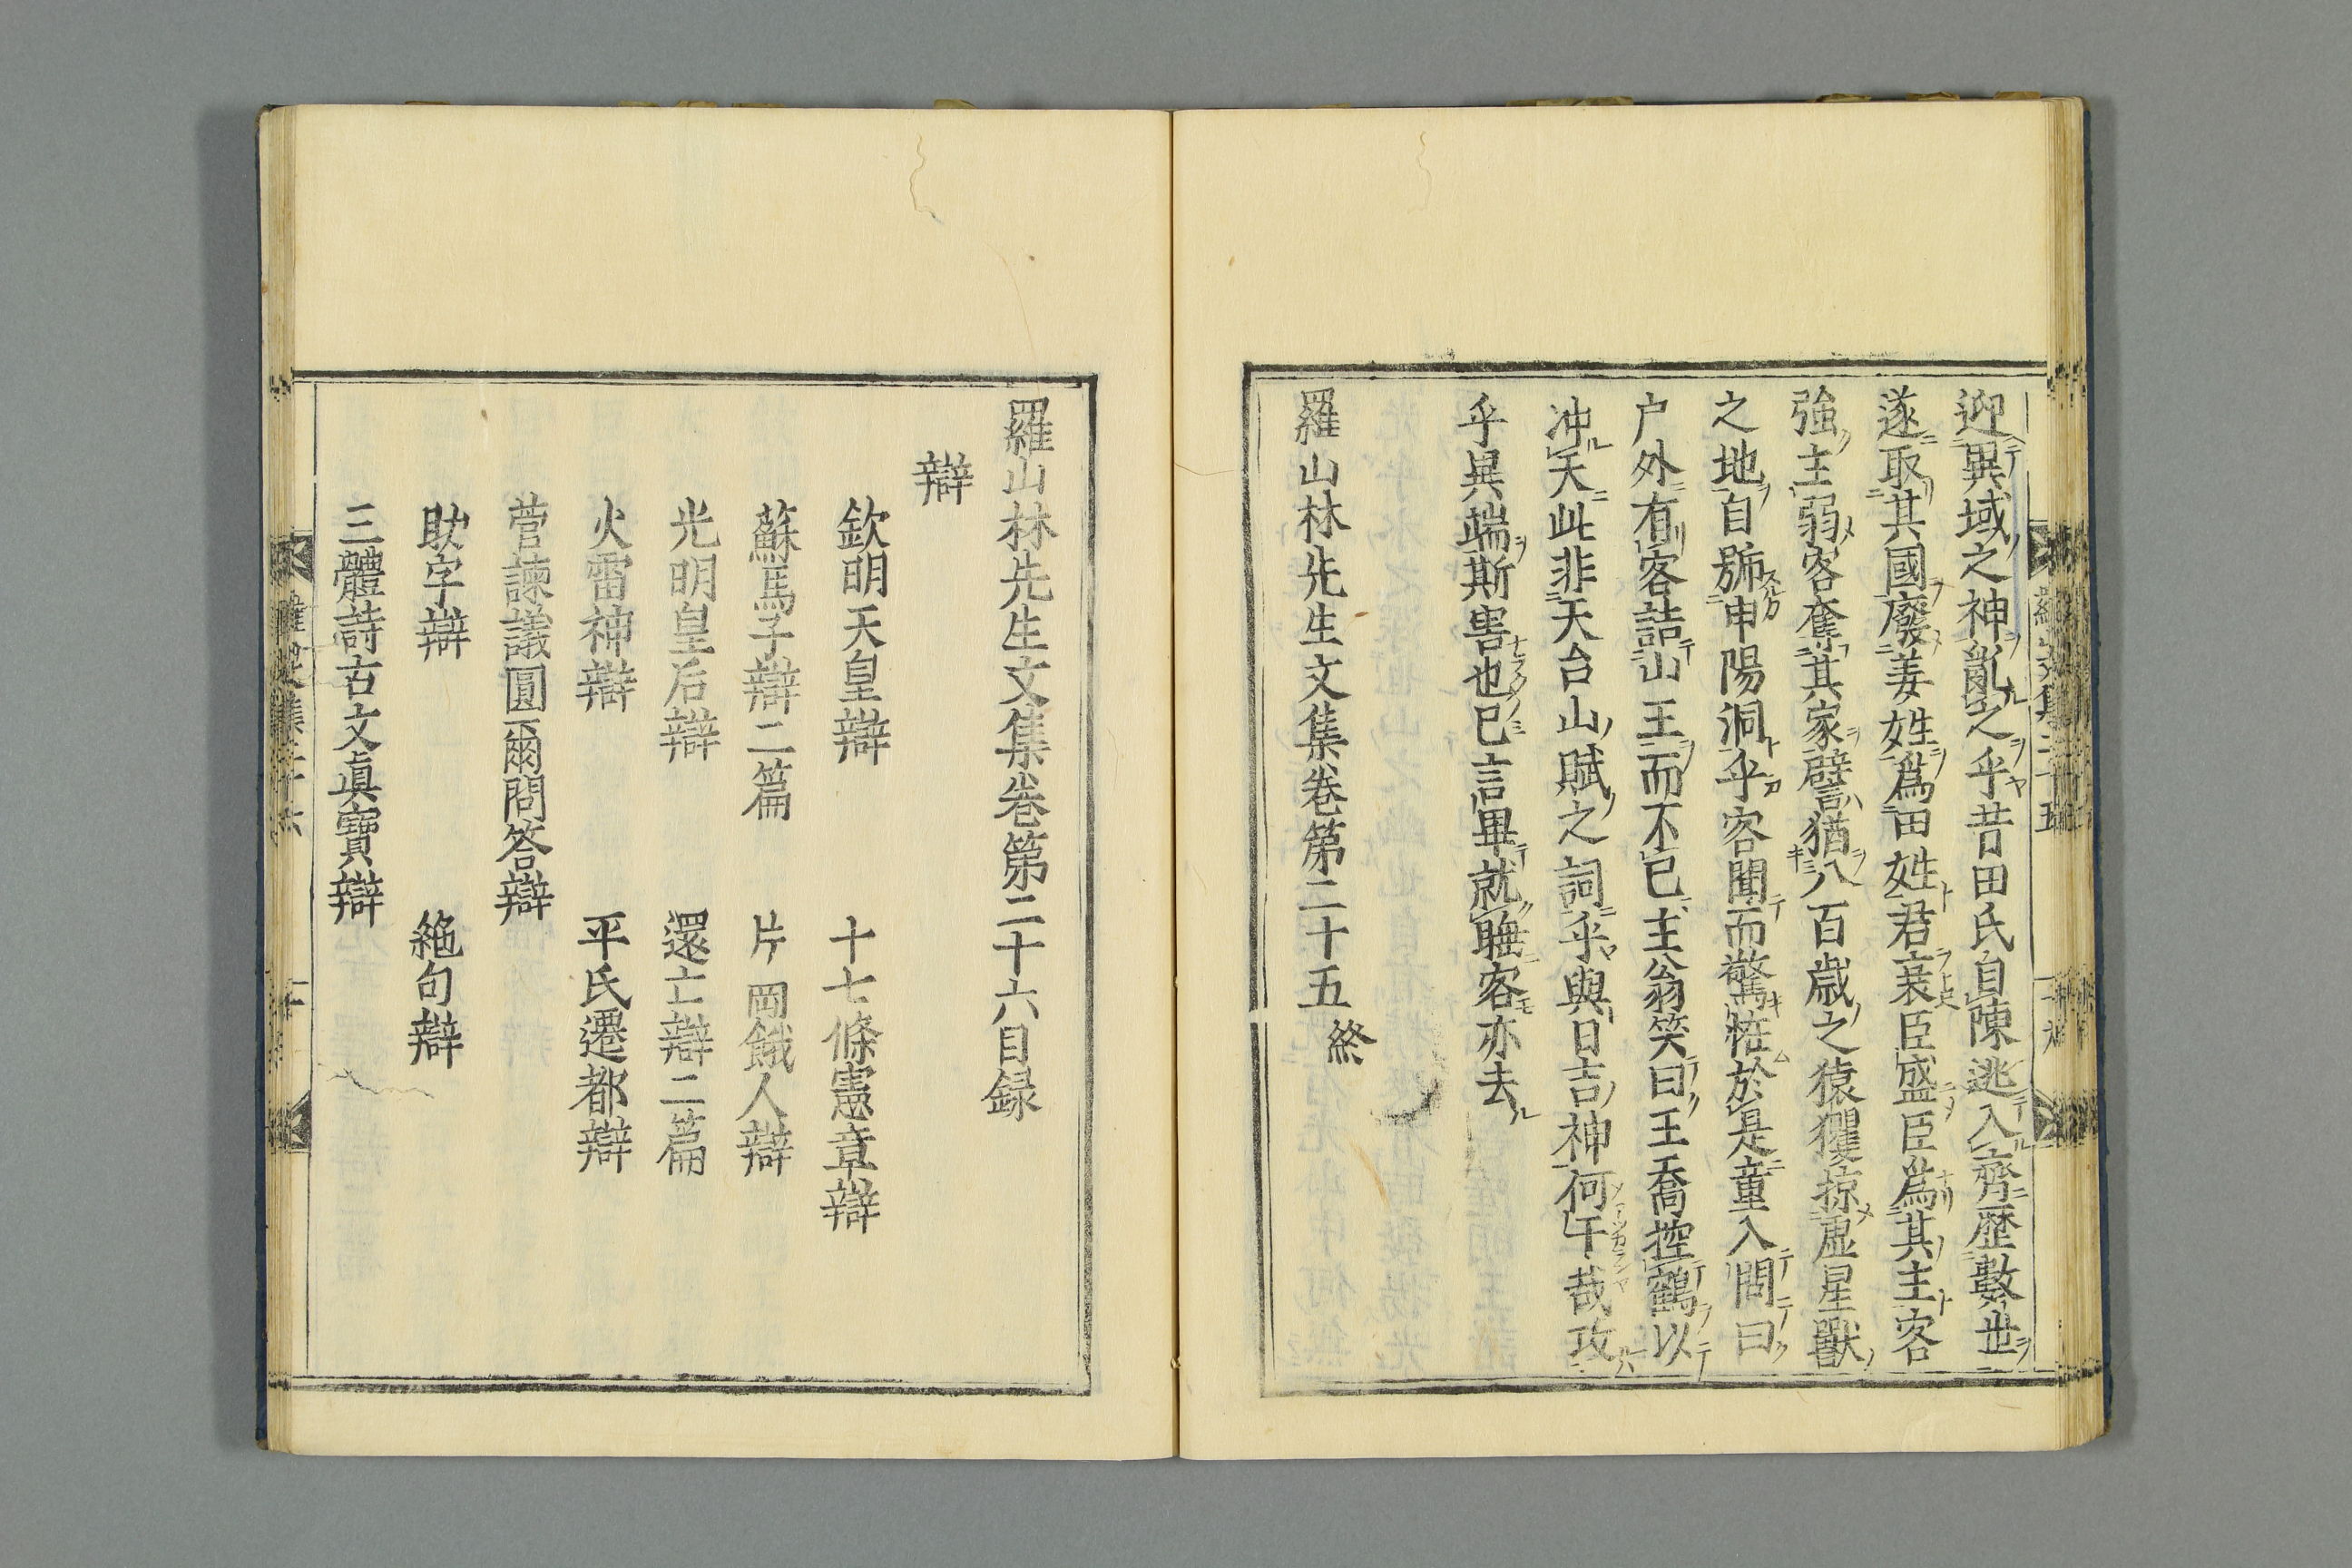 迎異域之神亂之乎昔田氏自陳逃入齊歴數世
遂取其國廢姜姓爲田姓君衰臣盛臣爲其主客
強主弱客奪其家譬猶八百歳之猿玃掠虛星獸
之地自號申陽洞乎客聞而驚怪於是童入問曰
户外有客詰山王而不已主翁笑曰王喬控鶴以
冲天此非天台山賦之詞乎與日吉神何干哉攻
乎異端斯害也已言畢就睡客亦去
羅山林先生文集卷第二十五 終
羅山林先生文集卷第二十六目録
辯
欽明天皇辯 十七條憲章辯
蘇馬子辯二篇 片岡餓人辯
光明皇后辯 還亡辯二篇
火雷神辯 平氏遷都辯
菅諫議圓爾問答辯
助字辯 絶句辯
三體詩古文眞寶辯